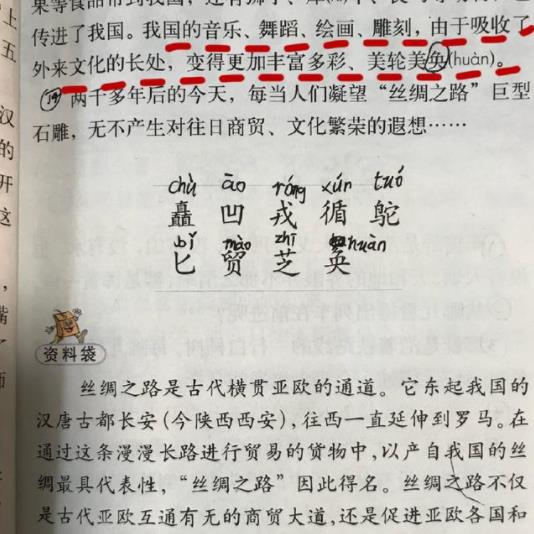 传进了我国。我国的音乐、舞蹈、绘画、雕刻，由于吸收了
外来文化的长处，变得更加丰富多彩、美轮美奂(huàn)。
两千多年后的今天，每当人们凝望“丝绸之路”巨型
石雕，无不产生对往日商贸、文化繁荣的遐想……
chù āo róng xún tuó
矗 凹 戎 循 鸵
bǐ mào zhī huàn
匕 贸 芝 奂
资料袋
丝绸之路是古代横贯亚欧的通道。它东起我国的
汉唐古都长安(今陕西西安)，往西一直延伸到罗马。在
通过这条漫漫长路进行贸易的货物中，以产自我国的丝
绸最具代表性，“丝绸之路”因此得名。丝绸之路不仅
是古代亚欧互通有无的商贸大道，还是促进亚欧各国和